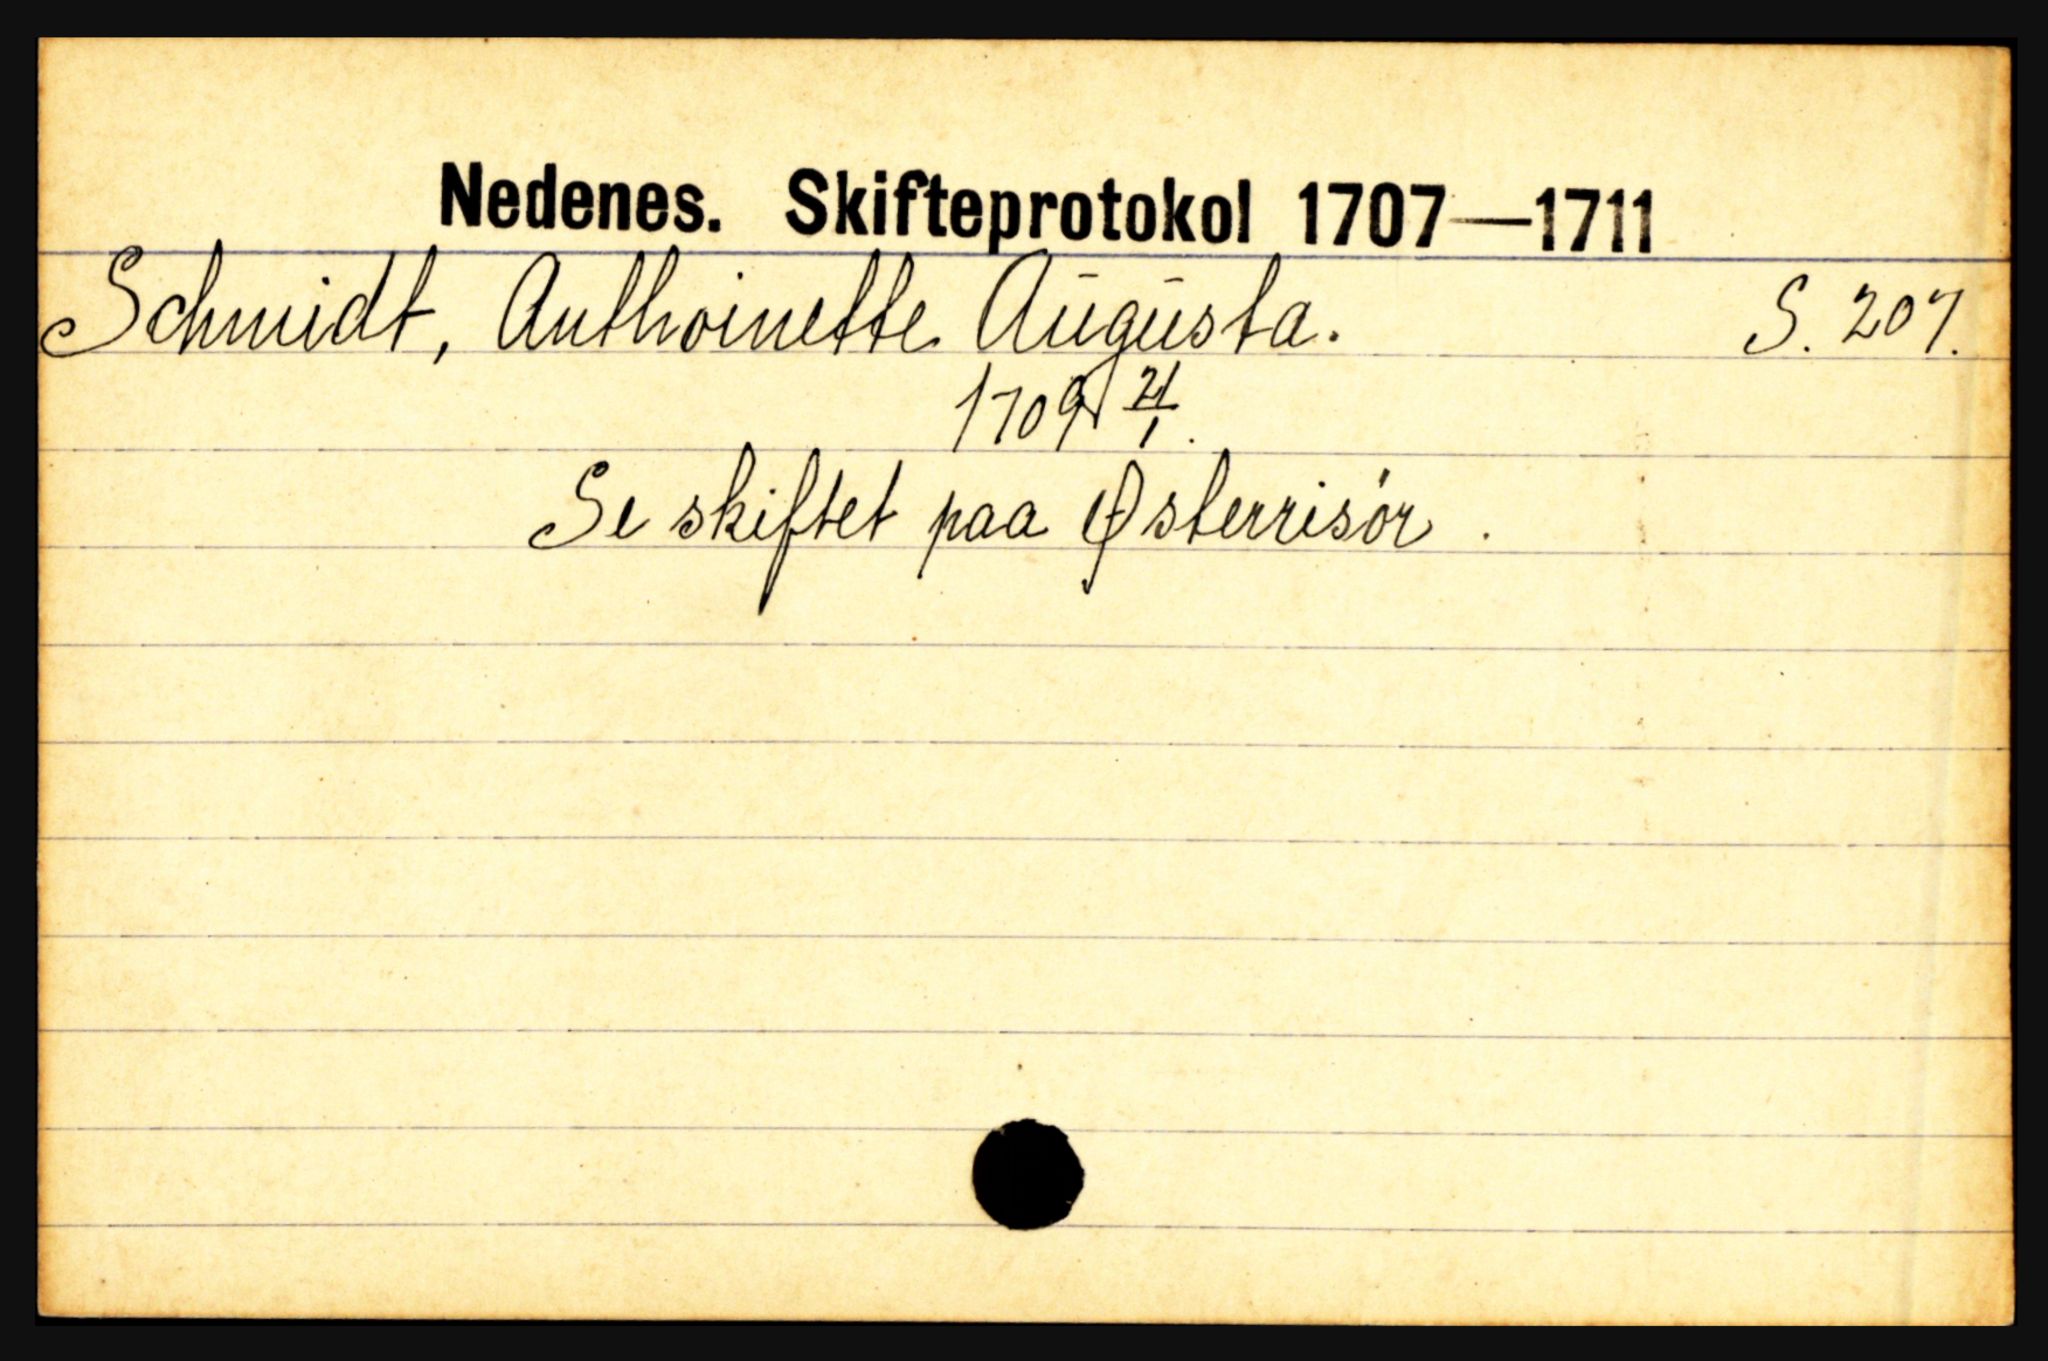 Nedenes. Skifteprotokol 1707—1711
Schmidt, Anthoinette Augusta. S. 207.
1709 21/1.
Se skiftet paa Østerrisör.